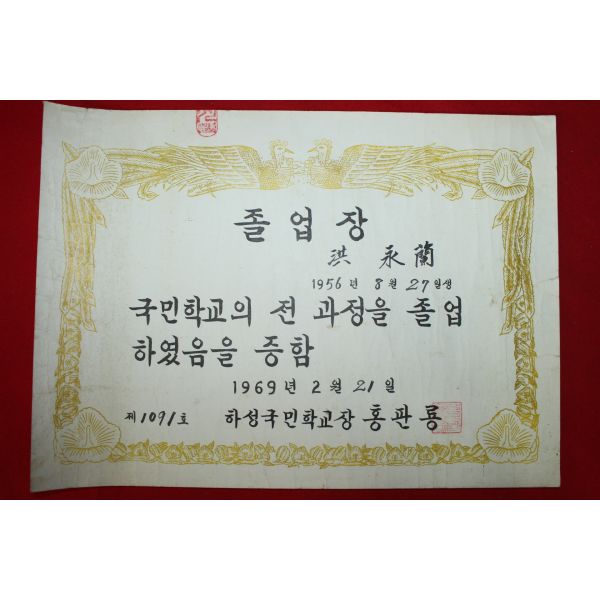 졸업장
洪永蘭
1956년 8월 27일생
국민학교의 전 과정을 졸업
하였음을 증함
1969년 2월 21일
제1091호 하성국민학교장 홍판룡